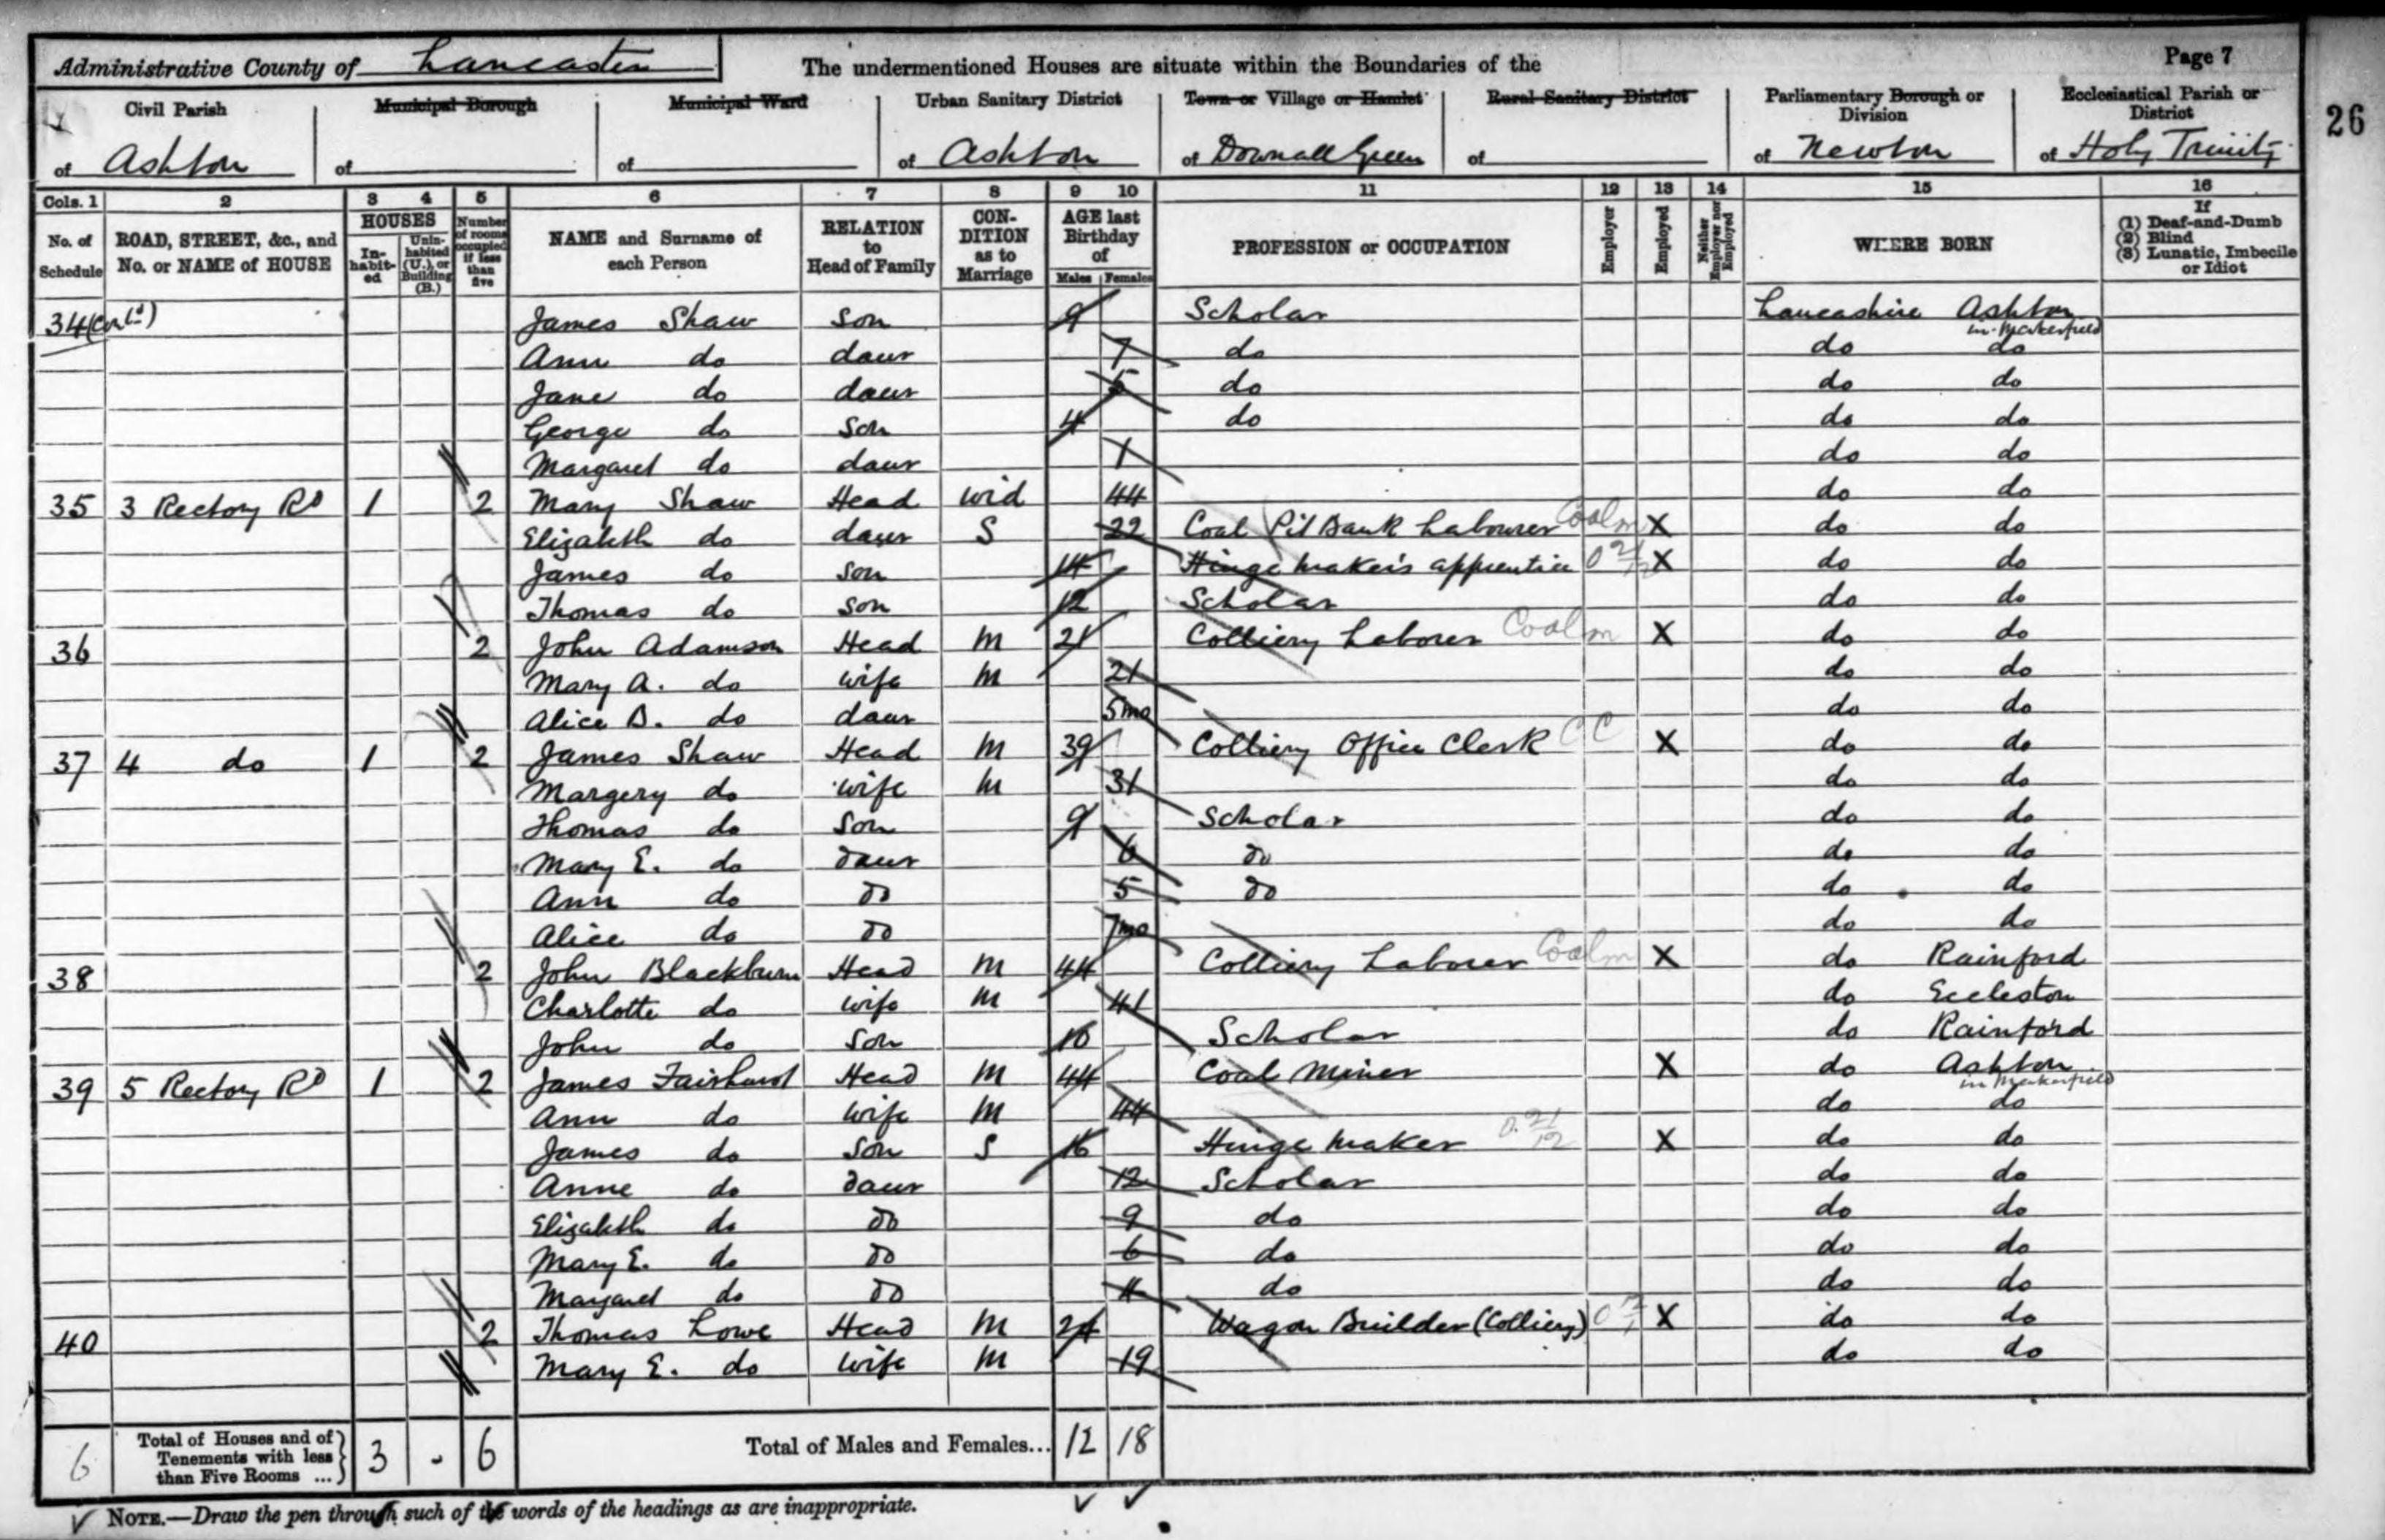 Page 7
Administrative County of Lancaster The undermentioned Houses are situate within the Boundaries of the
26
Civil Parish Municipal Borough Municipal Ward Urban Sanitary District Town or Village or Hamlet Rural Sanitary District Parliamentary Borough or Division Ecclesiastical Parish or District
of Ashton of of of Ashton of Downall Green of of Newton of Holy Trinity
Cols. 1 2 3 4 5 6 7 8 9 10 11 12 13 14 15 16
No. of Schedule ROAD, STREET, &c., and No. or NAME of HOUSE HOUSES In-habit-ed Unin-habited (U.), or Building (B.) Number of rooms occupied if less than five NAME and Surname of each Person RELATION to Head of Family CON-DITION as to Marriage AGE last Birthday of Males Females PROFESSION or OCCUPATION Employer Employed Neither Employer nor Employed WHERE BORN If (1) Deaf-and-Dumb (2) Blind (3) Lunatic, Imbecile or Idiot
34 (contd) James Shaw son 9 Scholar Lancashire Ashton in Makerfield
Ann do daur 7 do do do
Jane do daur 5 do do do
George do son 4 do do do
Margaret do daur 1 do do
35 3 Rectory Rd 1 2 Mary Shaw Head wid 44 do do
Elizabeth do daur S 22 Coal Pit Bank Labourer Coal m X do do
James do son 14 Hinge maker's apprentice O 21/12 X do do
Thomas do son 12 Scholar do do
36 2 John Adamson Head M 21 Colliery Laborer Coal m X do do
Mary A. do wife M 21 do do
Alice B. do daur 5mo do do
37 4 do 1 2 James Shaw Head M 39 Colliery Office Clerk CC X do do
Margery do wife M 31 do do
Thomas do son 9 Scholar do do
Mary E. do daur 6 do do do
Ann do do 5 do do do
Alice do do 7mo do do
38 2 John Blackburn Head M 44 Colliery Laborer Coal m X do Rainford
Charlotte do wife M 41 do Eccleston
John do son 10 Scholar do Rainford
39 5 Rectory Rd 1 2 James Fairhurst Head M 44 Coal Miner X do Ashton in Makerfield
Ann do wife M 44 do do
James do son S 16 Hinge Maker O. 21/12 X do do
Anne do daur 12 Scholar do do
Elizabeth do do 9 do do do
Mary E. do do 6 do do do
Margaret do do 4 do do do
40 2 Thomas Lowe Head M 24 Wagon Builder (Colliery) X do do
Mary E. do wife M 19 do do
6 Total of Houses and of Tenements with less than Five Rooms ... 3 - 6 Total of Males and Females... 12 18
NOTE.—Draw the pen through such of the words of the headings as are inappropriate.